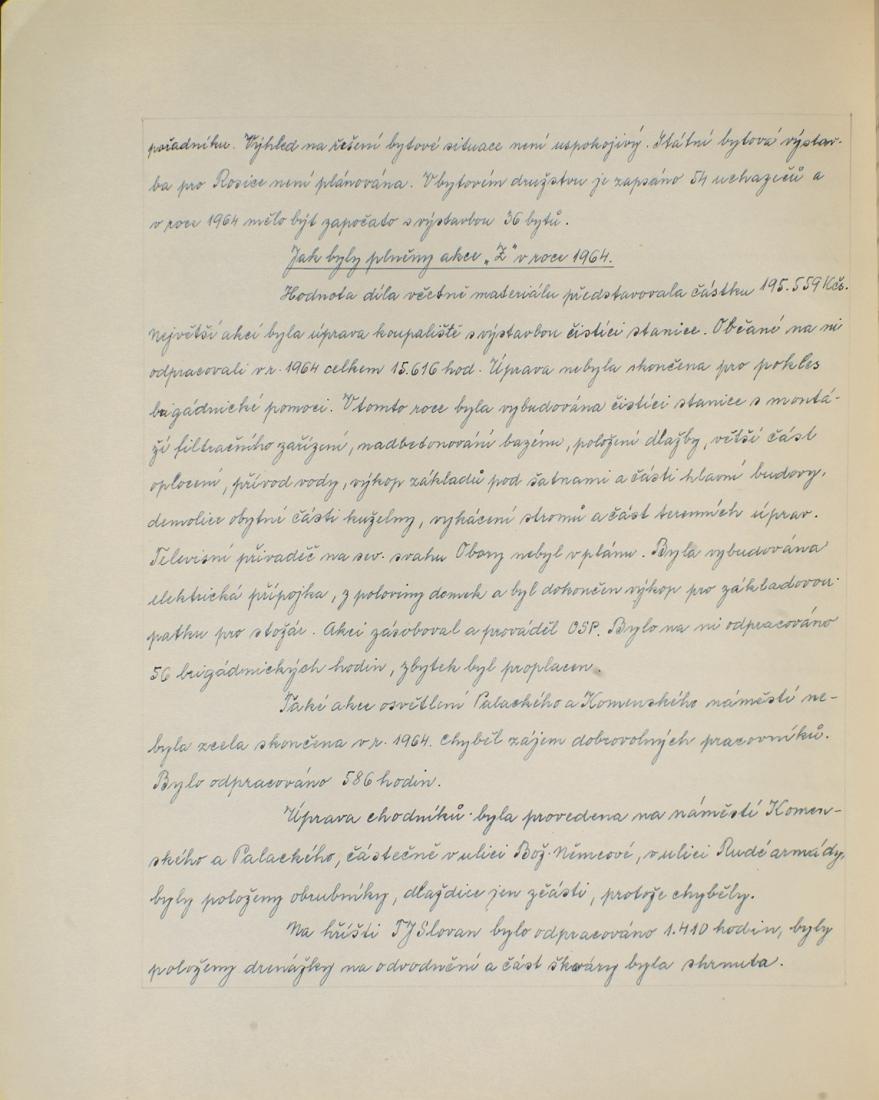 pořadníku. Výhled na řešení bytové situace není uspokojivý. Státní bytová výstav-
ba pro Rosice není plánována. V bytovém družstvu je zapsáno 54 uchazečů a
v roce 1964 mělo být započato s výstavbou 36 bytů.
Jak byly plněny akce „Z" v roce 1964.
Hodnota díla včetně materiálu představovala částku 195.559 Kčs.
Největší akcí byla úprava koupaliště s výstavbou čistící stanice. Občané na ni
odpracovali v r. 1964 celkem 15.616 hod. Úprava nebyla skončena pro pokles
brigádnické pomoci. V tomto roce byla vybudována čistící stanice s montá-
ží filtračního zařízení, nadbetonování bazénu, položení dlažby, větší část
oplocení, přívod vody, výkop základů pod šatnami a části hlavní budovy,
demolice obytné části kuželny, vykácení stromů a část terenních úprav.
Televisní přivaděč na sev. svahu Obory nebyl v plánu. Byla vybudována
elektrická přípojka, z poloviny domek a byl dokončen výkop pro základovou
patku pro stožár. Akci zásoboval a prováděl OSP. Bylo na ni odpracováno
56 brigádnických hodin, zbytek byl proplacen.
Také akce osvětlení Palackého a Komenského náměstí ne-
byla zcela skončena v r. 1964. Chyběl zájem dobrovolných pracovníků.
Bylo odpracováno 586 hodin.
Úprava chodníků byla provedena na náměstí Komen-
ského a Palackého, částečně v ulici Bož. Němcové, v ulici Rudé armády,
byly položeny obrubníky, dlaždice jen zčásti, protože chyběly.
Na hřišti TJ Slovan bylo odpracováno 1.410 hodin, byly
položeny drenážky na odvodnění a část škváry byla shrnuta.